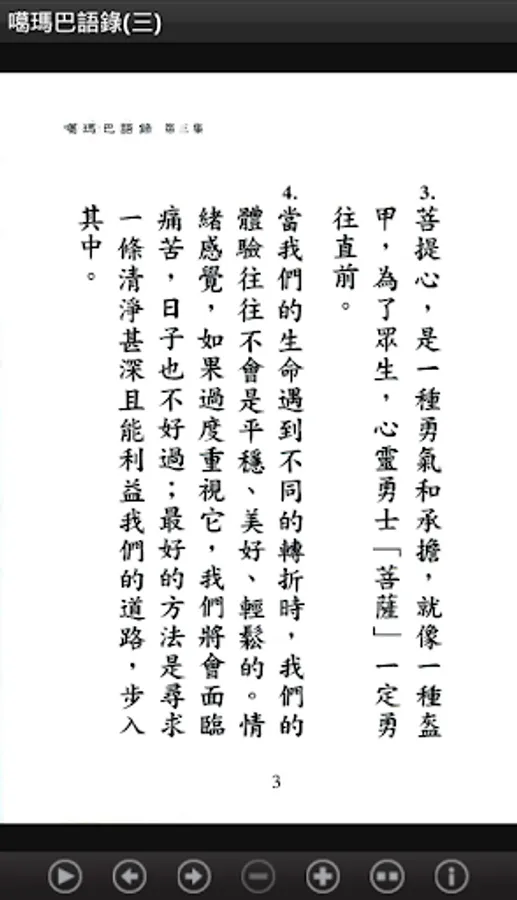 噶瑪巴語錄(三)
噶瑪巴語錄 第三集
3.
菩提心，是一種勇氣和承擔，就像一種盔
甲，為了眾生，心靈勇士「菩薩」一定勇
往直前。
4.
當我們的生命遇到不同的轉折時，我們的
體驗往往不會是平穩、美好、輕鬆的。情
緒感覺，如果過度重視它，我們將會面臨
痛苦，日子也不好過；最好的方法是尋求
一條清淨甚深且能利益我們的道路，步入
其中。
3